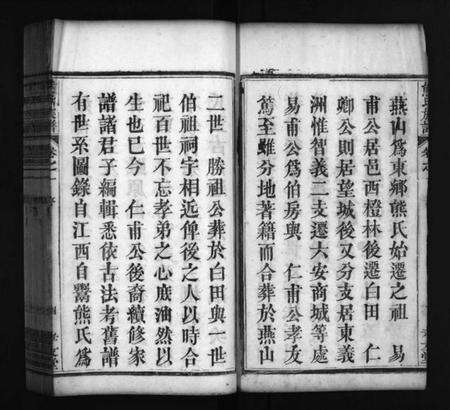 燕山爲東鄉熊氏始遷之祖　易
甫公居邑西橙林後遷白田　仁
卿公則居望城後又分支居東義
洲惟智義二支遷六安商城等處
易甫公爲伯房與　仁甫公孝友
篤至雖分地著籍而合葬於燕山
二世　勝祖公葬於白田與一世
伯祖祠宇相近俾後之人以時合
祀百世不忘孝弟之心庶油然以
生也已今　仁甫公後裔續修家
譜諸君子編輯悉依古法者舊譜
有世系圖錄自江西自鬻熊氏爲